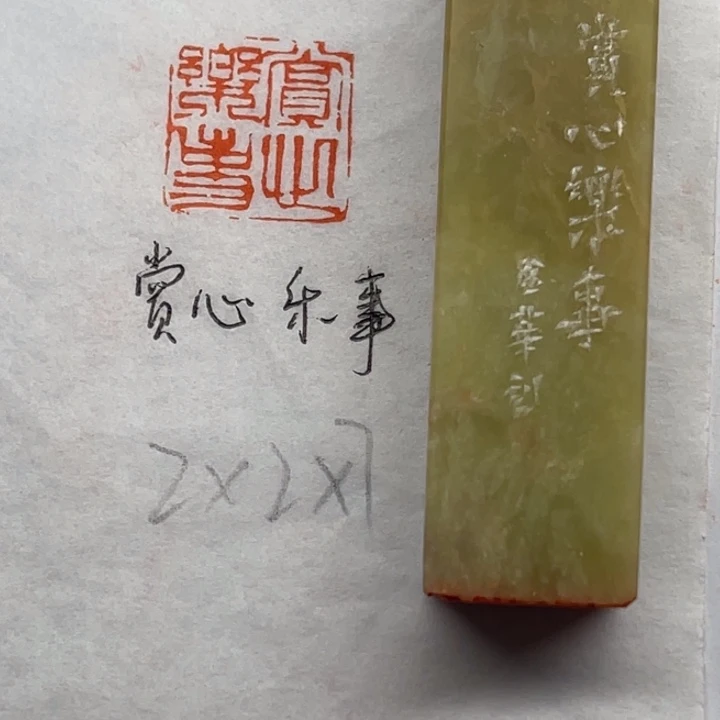 賞心樂事
賞心乐事
2×2×7
賞心樂事